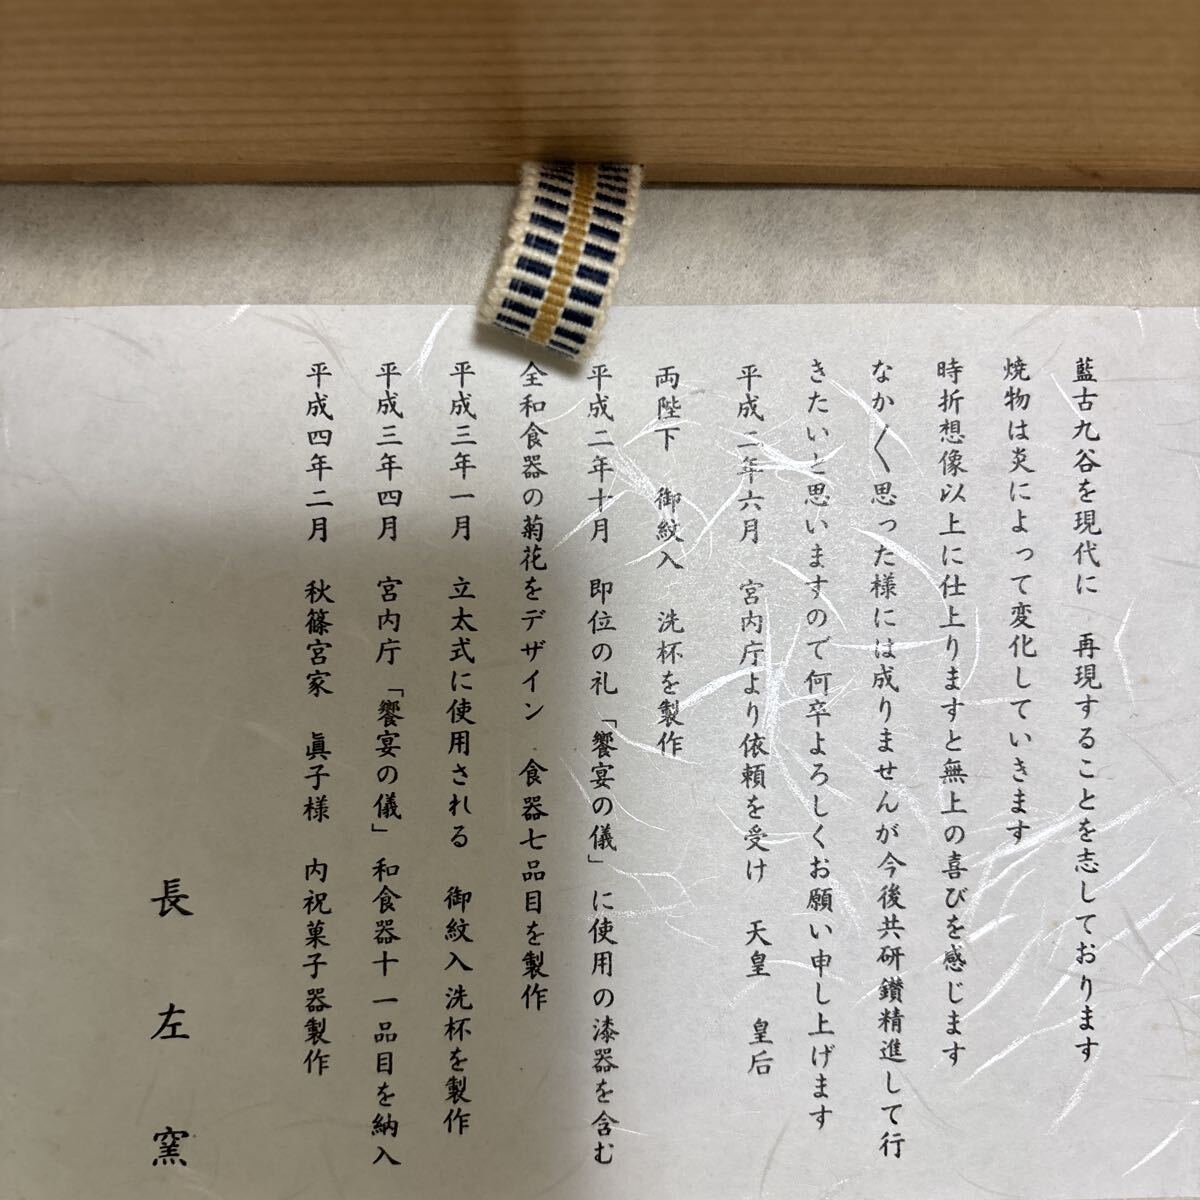 藍古九谷を現代に　再現することを志しております
焼物は炎によって変化していきます
時折想像以上に仕上りますと無上の喜びを感じます
なか〱思った様には成りませんが今後共研鑽精進して行
きたいと思いますので何卒よろしくお願い申し上げます
平成二年六月　宮内庁より依頼を受け　天皇　皇后
両陛下　御紋入　洗杯を製作
平成二年十月　即位の礼「饗宴の儀」に使用の漆器を含む
全和食器の菊花をデザイン　食器七品目を製作
平成三年一月　立太式に使用される　御紋入洗杯を製作
平成三年四月　宮内庁「饗宴の儀」和食器十一品目を納入
平成四年二月　秋篠宮家　眞子様　内祝菓子器製作
長左窯